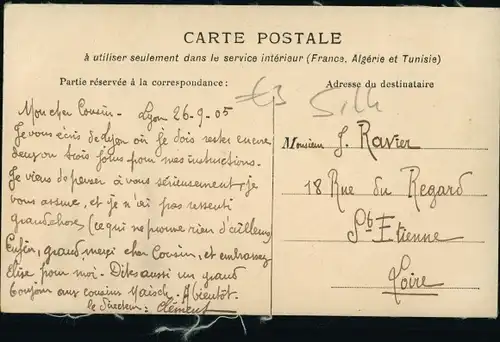 CARTE POSTALE
à utiliser seulement dans le service intérieur (France, Algérie et Tunisie)
Partie réservée à la correspondance :
Adresse du destinataire
€3
Silk
Mon cher Cousin - Lyon 26-9-05
Je vous écris de Lyon où je dois rester encore
deux ou trois jours pour mes instructions.
Je viens de penser à vous sérieusement je
vous assure, et je n'ai pas ressenti
grandchose (ce qui ne prouve rien d'ailleurs)
Enfin, grand merci cher Cousin, et embrassez
Elise pour moi - Dites aussi un grand
bonjour aux cousins - A bientôt.
le Directeur : Clément
Monsieur J. Ravier
18 Rue du Regard
St Etienne
Loire